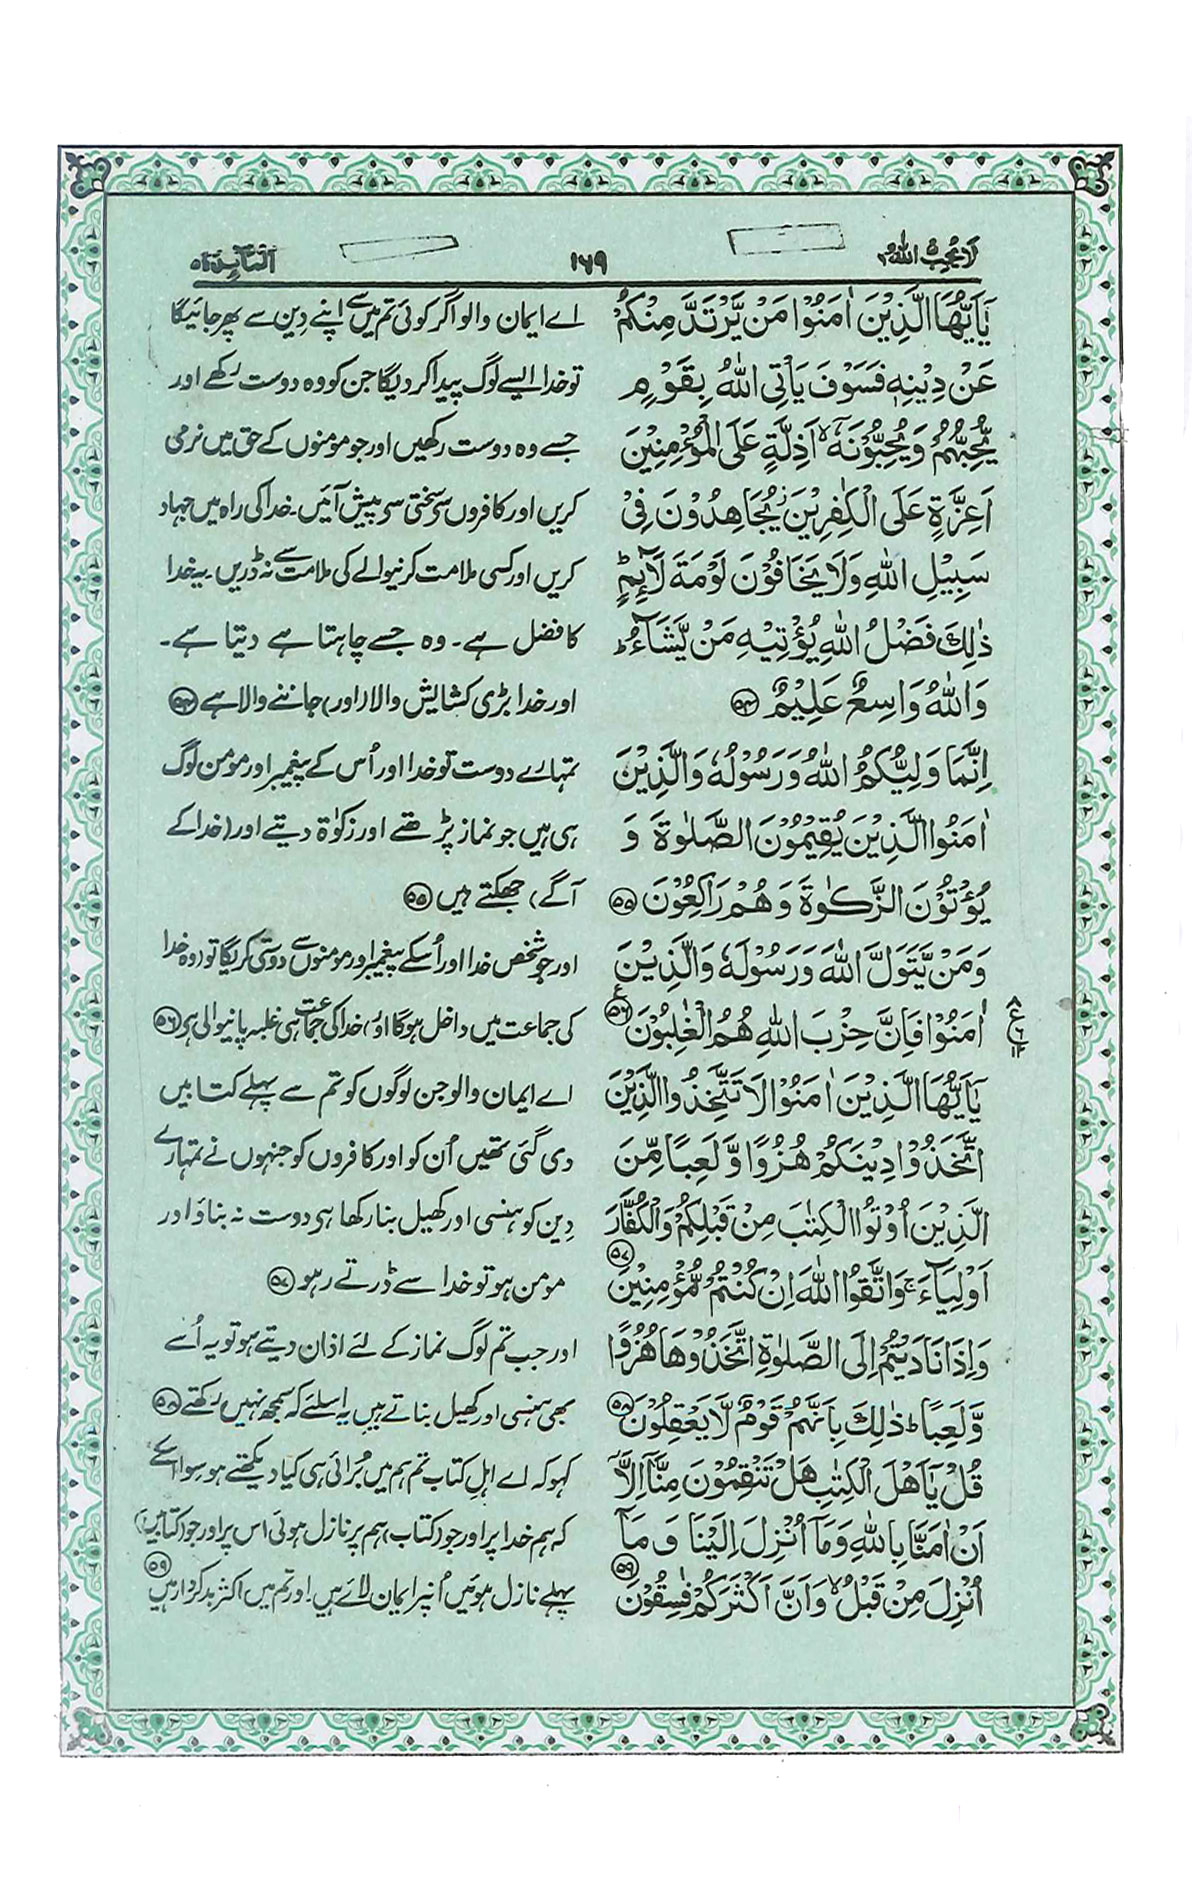 لا یحب اللہ ۶
۱۶۹
المآئدۃ ۵
يٰۤاَيُّهَا الَّذِيْنَ اٰمَنُوْا مَنْ يَّرْتَدَّ مِنْكُمْ
عَنْ دِيْنِهٖ فَسَوْفَ يَاْتِى اللّٰهُ بِقَوْمٍ
يُّحِبُّهُمْ وَيُحِبُّوْنَهٗۤ ۙ اَذِلَّةٍ عَلَى الْمُؤْمِنِيْنَ
اَعِزَّةٍ عَلَى الْكٰفِرِيْنَ ۫ يُجَاهِدُوْنَ فِىْ
سَبِيْلِ اللّٰهِ وَلَا يَخَافُوْنَ لَوْمَةَ لَاۤئِمٍ ؕ
ذٰلِكَ فَضْلُ اللّٰهِ يُؤْتِيْهِ مَنْ يَّشَآءُ ؕ
وَاللّٰهُ وَاسِعٌ عَلِيْمٌ ۵۴
اِنَّمَا وَلِيُّكُمُ اللّٰهُ وَرَسُوْلُهٗ وَالَّذِيْنَ
اٰمَنُوا الَّذِيْنَ يُقِيْمُوْنَ الصَّلٰوةَ وَ
يُؤْتُوْنَ الزَّكٰوةَ وَهُمْ رَاكِعُوْنَ ۵۵
وَمَنْ يَّتَوَلَّ اللّٰهَ وَرَسُوْلَهٗ وَالَّذِيْنَ
اٰمَنُوْا فَاِنَّ حِزْبَ اللّٰهِ هُمُ الْغٰلِبُوْنَ ۵۶
يٰۤاَيُّهَا الَّذِيْنَ اٰمَنُوْا لَا تَتَّخِذُوا الَّذِيْنَ
اتَّخَذُوْا دِيْنَكُمْ هُزُوًا وَّلَعِبًا مِّنَ
الَّذِيْنَ اُوْتُوا الْكِتٰبَ مِنْ قَبْلِكُمْ وَالْكُفَّارَ
اَوْلِيَآءَ ۚ وَاتَّقُوا اللّٰهَ اِنْ كُنْتُمْ مُّؤْمِنِيْنَ ۵۷
وَاِذَا نَادَيْتُمْ اِلَى الصَّلٰوةِ اتَّخَذُوْهَا هُزُوًا
وَّلَعِبًا ؕ ذٰلِكَ بِاَنَّهُمْ قَوْمٌ لَّا يَعْقِلُوْنَ ۵۸
قُلْ يٰۤاَهْلَ الْكِتٰبِ هَلْ تَنْقِمُوْنَ مِنَّاۤ اِلَّاۤ
اَنْ اٰمَنَّا بِاللّٰهِ وَمَاۤ اُنْزِلَ اِلَيْنَا وَمَاۤ
اُنْزِلَ مِنْ قَبْلُ ۙ وَاَنَّ اَكْثَرَكُمْ فٰسِقُوْنَ ۵۹
اے ایمان والو اگر کوئی تم میں سے اپنے دِین سے پھر جائیگا
تو خدا ایسے لوگ پیدا کر دیگا جن کو وہ دوست رکھے اور
جسے وہ دوست رکھیں اور جو مومنوں کے حق میں نرمی
کریں اور کافروں سے سختی سے پیش آئیں۔ خدا کی راہ میں جہاد
کریں اور کسی ملامت کرنیوالے کی ملامت سے نہ ڈریں یہ خدا
کا فضل ہے۔ وہ جسے چاہتا ہے دیتا ہے۔
اور خدا بڑی کشایش والا (اور) جاننے والا ہے ۵۴
تمہارے دوست تو خدا اور اُس کے پیغمبر اور مومن لوگ
ہی ہیں جو نماز پڑھتے اور زکوٰۃ دیتے اور (خدا کے
آگے) جھکتے ہیں ۵۵
اور جو شخص خدا اور اُسکے پیغمبر اور مومنوں سے دوستی کریگا تو (وہ خدا
کی جماعت میں داخل ہوگا اور) خدا کی جماعت ہی غلبہ پانیوالی ہے ۵۶
اے ایمان والو جن لوگوں کو تم سے پہلے کتابیں
دی گئی تھیں اُن کو اور کافروں کو جنہوں نے تمہارے
دِین کو ہنسی اور کھیل بنا رکھا ہے دوست نہ بناؤ اور
مومن ہو تو خدا سے ڈرتے رہو ۵۷
اور جب تم لوگ نماز کے لئے اذان دیتے ہو تو یہ اُسے
بھی ہنسی اور کھیل بناتے ہیں یہ اسلئے کہ سمجھ نہیں رکھتے ۵۸
کہو کہ اے اہلِ کتاب تم ہم میں بُرائی ہی کیا دیکھتے ہو سوا اسکے
کہ ہم خدا پر اور جو (کتاب) ہم پر نازل ہوئی اس پر اور جو (کتابیں)
پہلے نازل ہوئیں اُنپر ایمان لائے ہیں اور تم میں اکثر بدکردار ہیں ۵۹